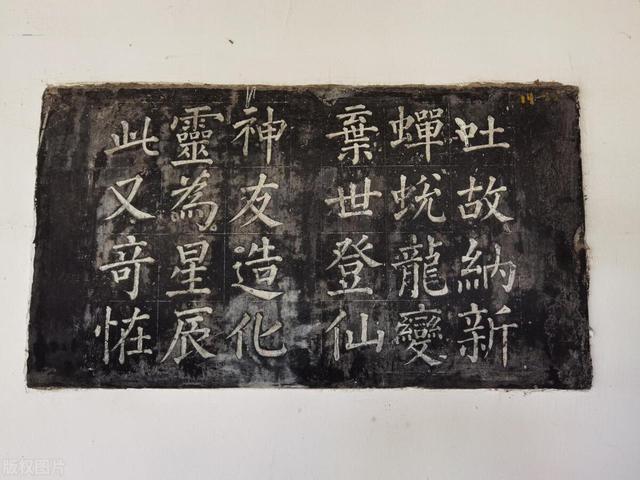 吐故納新
蟬蛻龍變
棄世登仙
神友造化
靈為星辰
此又奇怪
14
版权图片